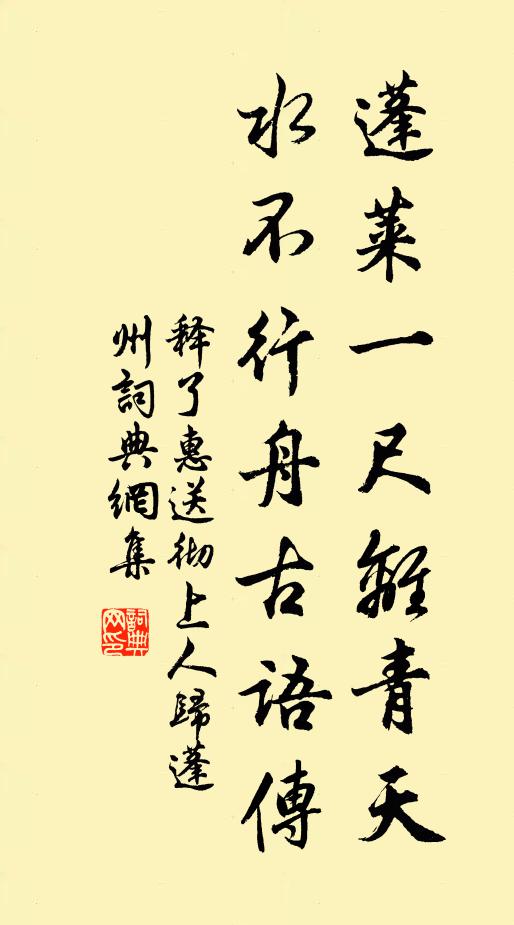 蓬莱一尺離青天
水不行舟古語傳
释了惠送彻上人歸蓬
州詞典網集
詞典
网印